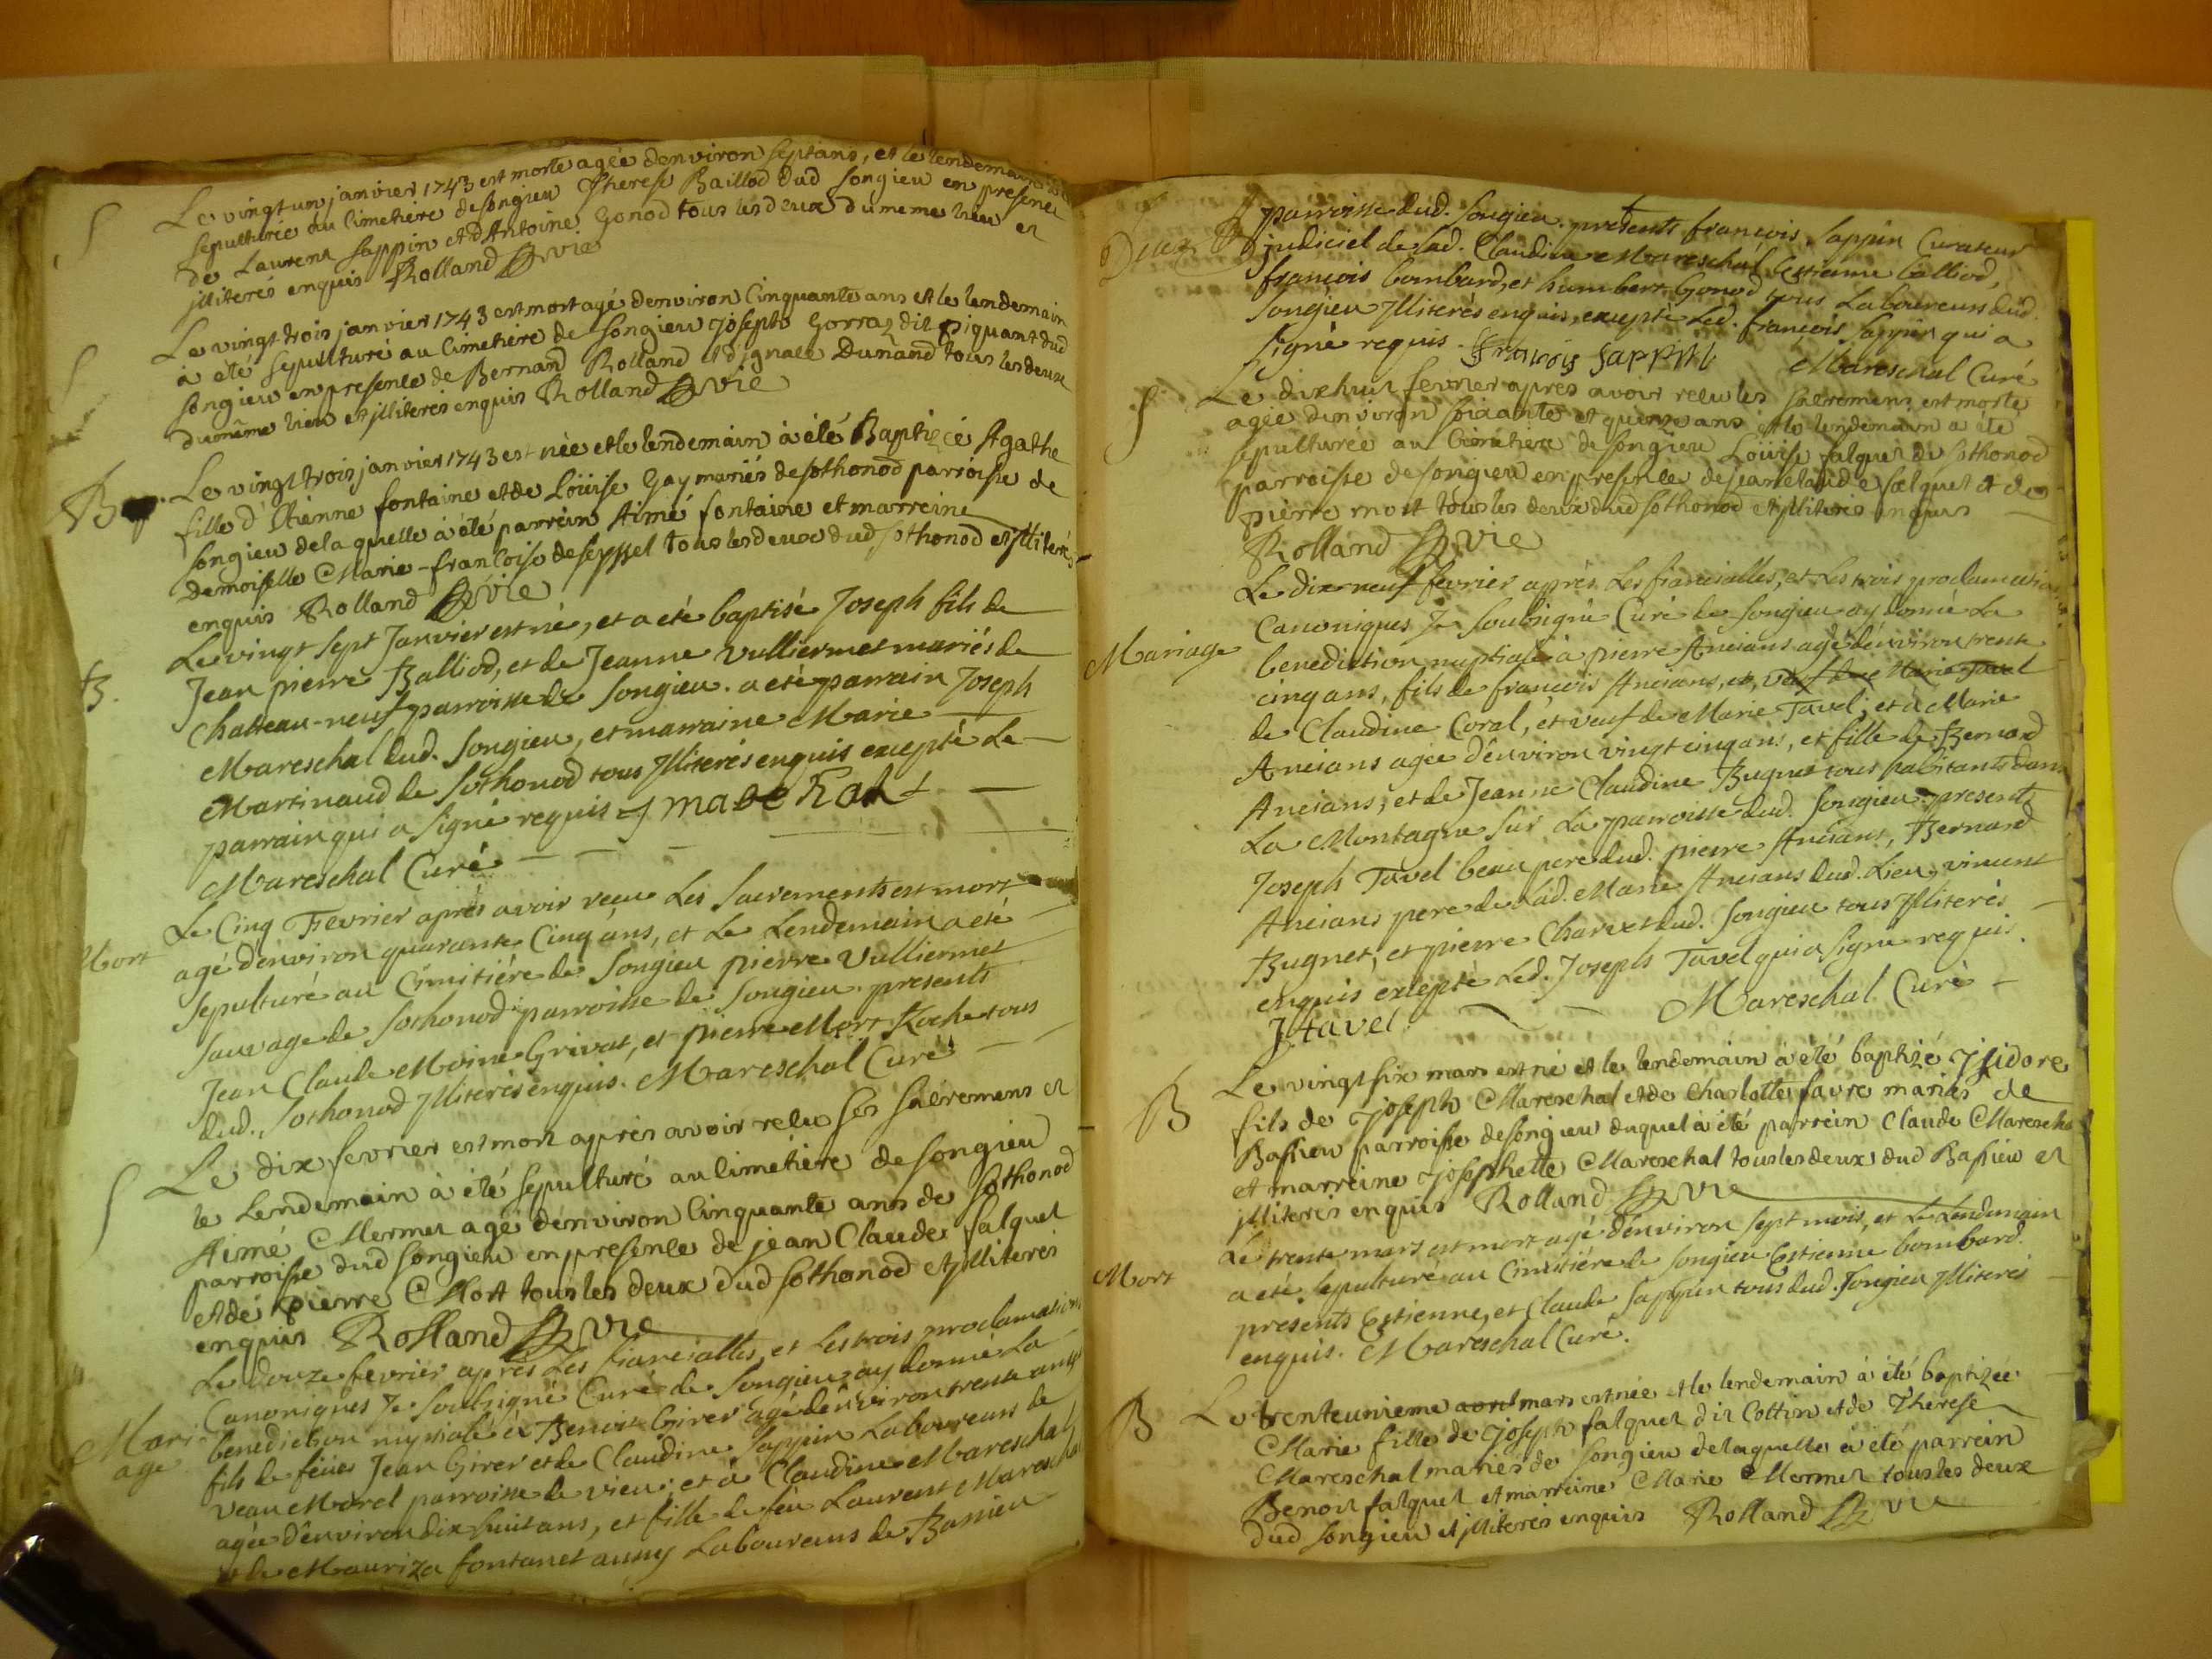 S
Le vingt un janvier 1743 est morte agée denviron sept ans, et le lendemain
sepulturée au cimetiére de songieu Therese Baillod dud songieu en presence
de Laurent sappin et d'Antoine Gonod tous les deux du meme lieu et
jlliterés enquis Rolland vic
S
Le vingt trois janvier 1743 est mort agé denviron Cinquante ans et le lendemain
à été sepulturé au Cimetiére de songieu joseph Gorraz dit piquant dud
songieu en presence de Bernard Rolland et d'ignace Dunand tous les deux
du même lieu et jlliterés enquis Rolland vic
B
Le vingt trois janvier 1743 est née et le lendemain à été Baptizée Agathe
fille d'Etienne fontaine et de Loüise Gay mariés de sothonod parroisse de
songieu de laquelle à été parrein Aimé fontaine et marreine
demoiselle Marie-francoise de seyssel tous les deux dud sothonod et jlliterés
enquis Rolland vic
B.
Le vingt sept Janvier est né, et a eté baptisé Joseph fils de
Jean pierre Balliod, et de Jeanne Vulliermet mariés de
Chatteau-neuf parroisse de Songieu. a eté parrain Joseph
Mareschal dud. Songieu, et marraine Marie
Martinaud de Sothonod tous Jlliterés enquis excepté le
parrain qui a signé requis J mareschal
Mareschal Curé
Mort
Le Cinq Fevrier aprés avoir receu Les Sacrements est mort
agé d'environ quarante Cinq ans, et Le Lendemain a eté
Sepulturé au Cimitiére de Songieu pierre Vulliermet
Sauvage de Sothonod parroisse de Songieu. presents
Jean Claude Moine Grivat, et pierre Mort Roche tous
dud. Sothonod Jlliterés enquis. Mareschal Curé
S
Le dix fevrier est mort aprés avoir recu ses sacremens et
le Lendemain à été sepulturé au cimetiére de songieu
Aimé Mermet agé denviron Cinquante ans de sothonod
parroisse dud songieu en presence de jean Claude falquet
et de pierre Mort tous les deux dud sothonod et jlliterés
enquis Rolland vic
Mari-
age
Le Douze fevrier aprés Les fiancialles, et Les trois proclamations
Canoniques Je Soubsigné Curé de Songieu ay donné La
benediction nuptiale à Benoit Girer agé d'environ trente ans
fils de feüe Jean Girer et de Claudine Sappin Laboureurs de
Veau Morel parroisse de vieu; et à Claudine Mareschal
agée d'environ dix huit ans, et fille de feu Laurent Mareschal
et de Mauriza fontanet aussy Laboureurs de Bassieu
parroisse dud. Songieu. presents francois Sappin Curateur
judiciel de Lad. Claudine Mareschal Estienne Balliod,
francois bombard, et humbert Gonod tous Laboureurs dud.
Songieu Jlliterés enquis, excepté Led. francois Sappin qui a
Signé requis. francois sappin Mareschal Curé
S
Le dixhuit fevrier apres avoir recu les sacremens est morte
agée denviron soixante et quinze ans et le lendemain a été
sepulturée au Cimetiére de songieu Loüise falquet de sothonod
parroisse de songieu en presence de jean claude falquet et de
pierre mort tous les deux dud sothonod et jlliterés enquis
Rolland vic
Mariage
Le dix neuf fevrier aprés Les fiancialles, et Les trois proclamations
Canoniques Je Soubsigné Curé de Songieu ay donné La
benediction nuptiale à pierre Ancians agé d'environ trente
cinq ans, fils de francois Ancians, et, veuf de Marie Tavel
de Claudine Coral, et veuf de Marie Tavel; et à Marie
Ancians agée d'environ vingt cinq ans, et fille de Bernard
Ancians, et de Jeanne Claudine Bugnet tous habitants dans
La Montagne Sur La parroisse dud. Songieu. presents
Joseph Tavel beau pere dud. pierre Ancians, Bernard
Ancians pere de Lad. Marie Ancians dud. Lieu, vincent
Bugnet, et pierre Charvet dud. Songieu tous Jlliterés
enquis excepté Led. Joseph Tavel qui a Signé requis.
J tavel Mareschal Curé
B
Le vingt six mars est né et le lendemain à été baptizé jsidore
fils de joseph Mareschal et de Charlotte favre mariés de
Bassieu parroisse de songieu duquel à été parrein Claude Mareschal
et marreine josephette Mareschal tous les deux dud Bassieu et
jlliterés enquis Rolland vic
Mort
Le trente mars est mort agé d'environ sept mois, et Le Lendemain
a eté Sepulturé au Cimitiére de Songieu Estienne bombard.
presents Estienne, et Claude Sappin tous dud. Songieu Jlliterés
enquis. Mareschal Curé.
B
Le trenteunieme aout mars est née et le lendemain à été baptizée
Marie fille de joseph falquet dit Cottin et de Therese
Mareschal mariés de songieu de laquelle à été parrein
Benoit falquet et marreine Marie Mermet tous les deux
dud songieu et jlliterés enquis Rolland vic